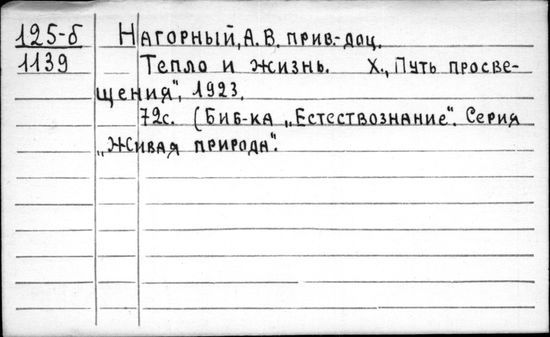 125-б НАГОРНЫЙ, А.В. прив.-доц.
1139 Тепло и жизнь. Х., Путь просве-
щения", 1923.
72с. (Биб-ка „Естествознание". Серия
„Живая природа".